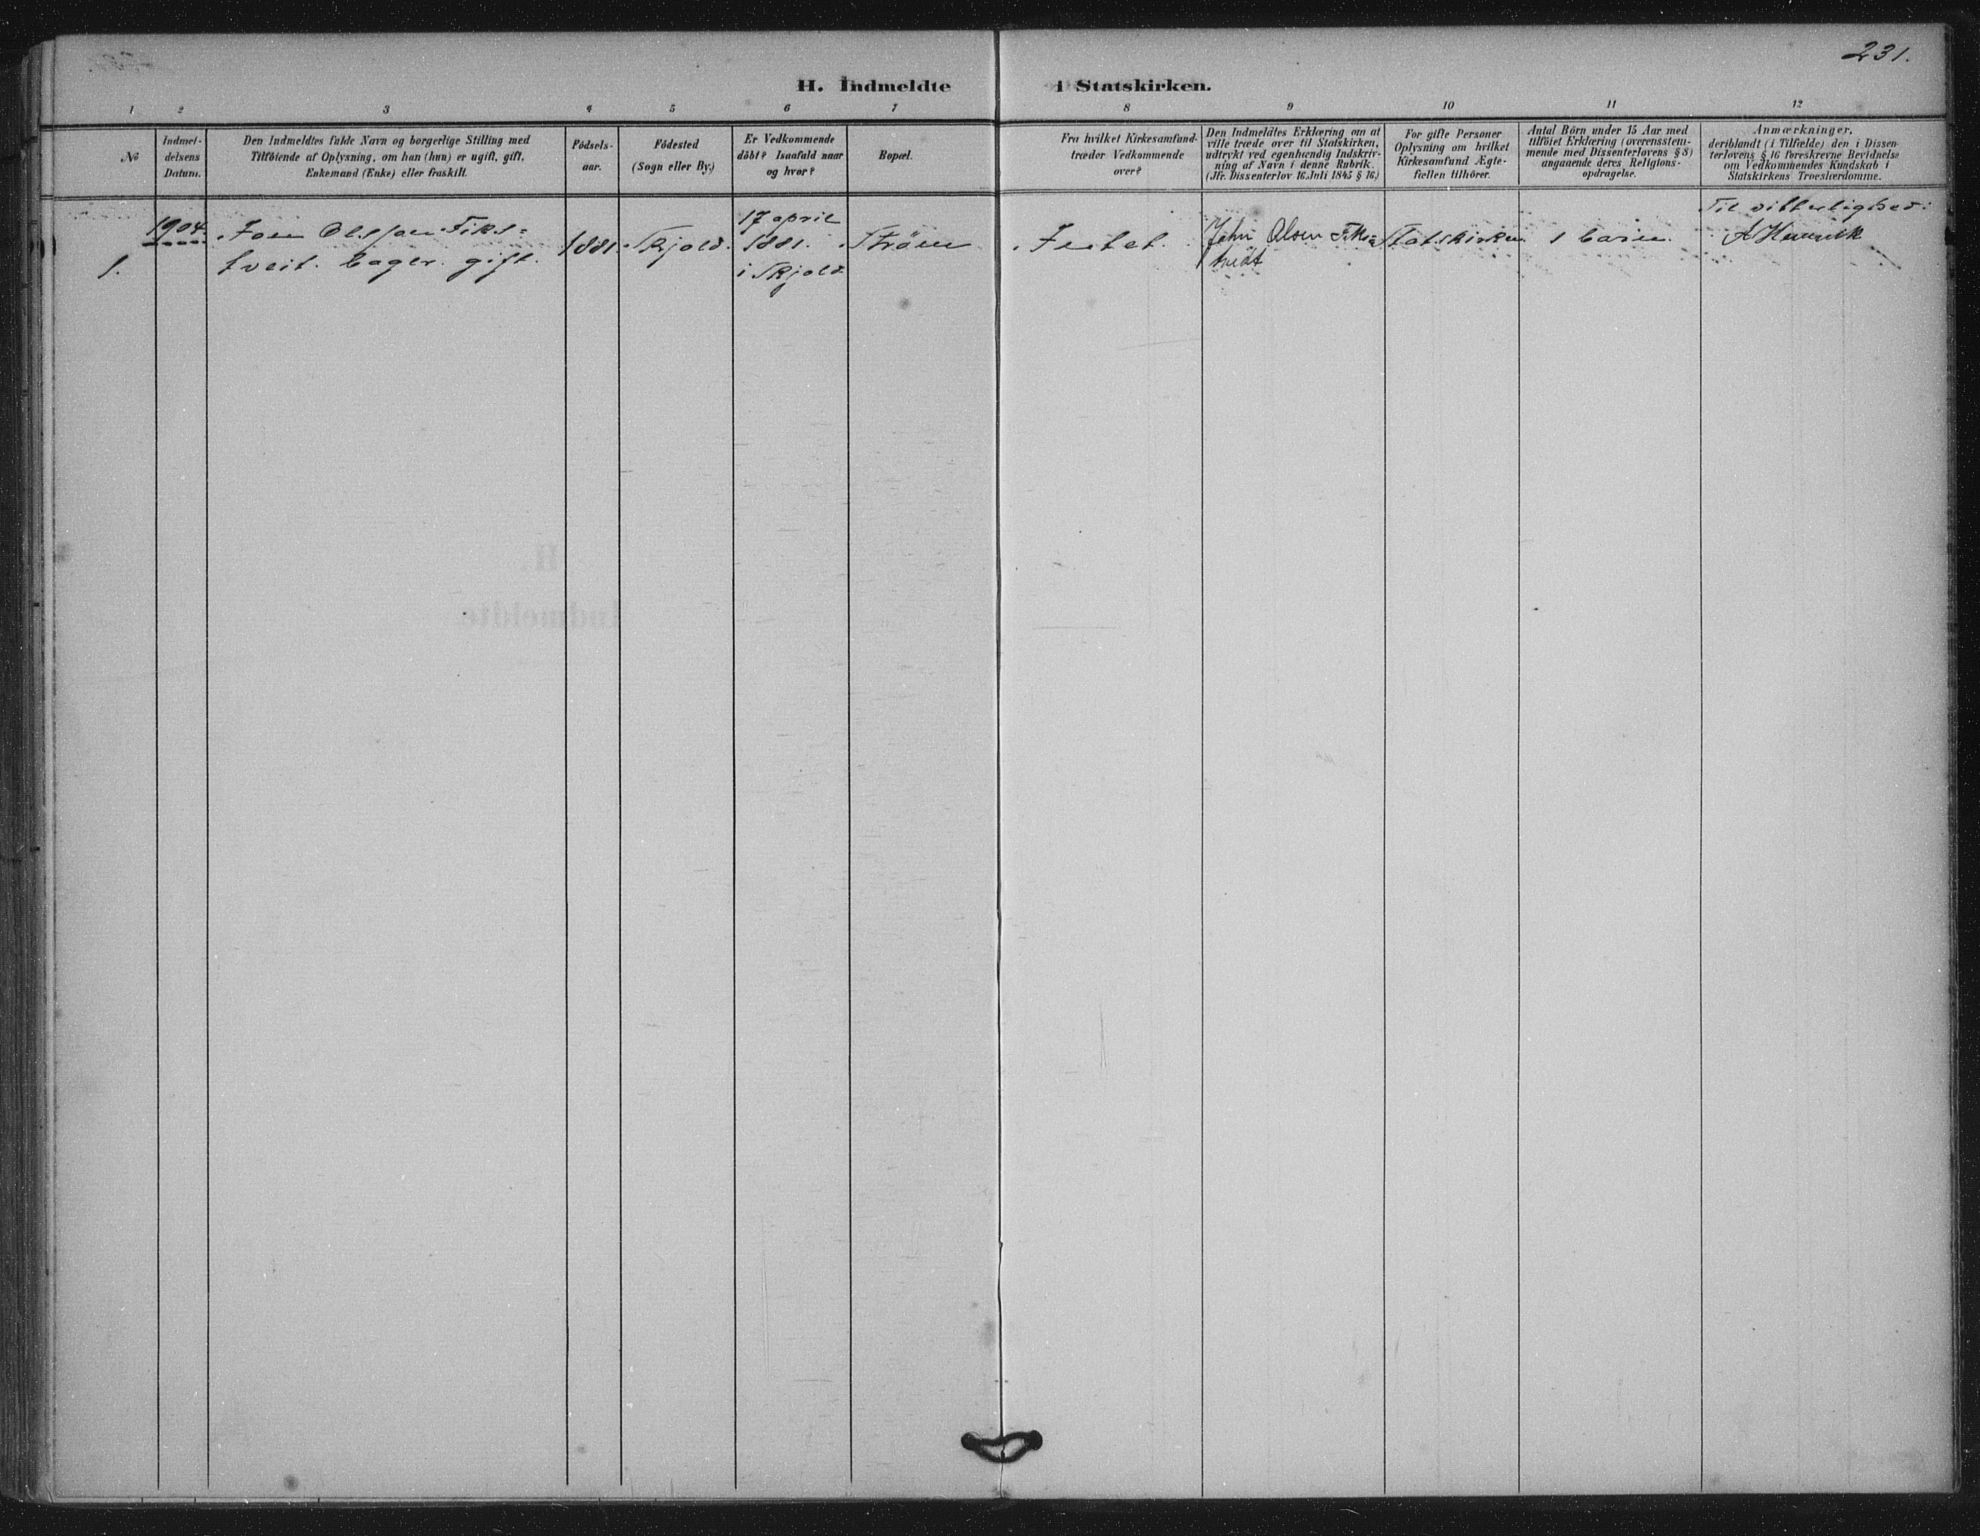 231.
H. Indmeldte i Statskirken.
1 2 3 4 5 6 7 8 9 10 11 12
No
Indmel-
delsens
Datum.
Den Indmeldtes fulde Navn og borgerlige Stilling med
Tilföiende af Oplysning, om han (hun) er ugift, gift,
Enkemand (Enke) eller fraskilt.
Födsels-
aar.
Födested
(Sogn eller By.)
Er Vedkommende
döbt? Isaafald naar
og hvor?
Bopæl.
Fra hvilket Kirkesamfund
træder Vedkommende
over?
Den Indmeldtes Erklæring om at
ville træde over til Statskirken,
udtrykt ved egenhændig Indskriv-
ning af Navn i denne Rubrik.
(Jfr. Dissenterlov 16. Juli 1845 § 16.)
For gifte Personer
Oplysning om hvilket
Kirkesamfund Ægte-
fællen tilhörer.
Antal Börn under 15 Aar med
tilföiet Erklæring (overensstem-
mende med Dissenterlovens § 8)
angaaende deres Religions-
opdragelse.
Anmærkninger,
deriblandt (i Tilfælde) den i Dissen-
terlovens § 16 foreskrevne Bevidnelse
om Vedkommendes Kundskab i
Statskirkens Troeslærdomme.
1.
1904
Olsson Fiks=
tveit. bager. gift.
1881.
Skjold.
17 april
1881.
i Skjold
John Olsen Fiks=
tvedt
Statskirken
1 barn.
Til vitterlighed: